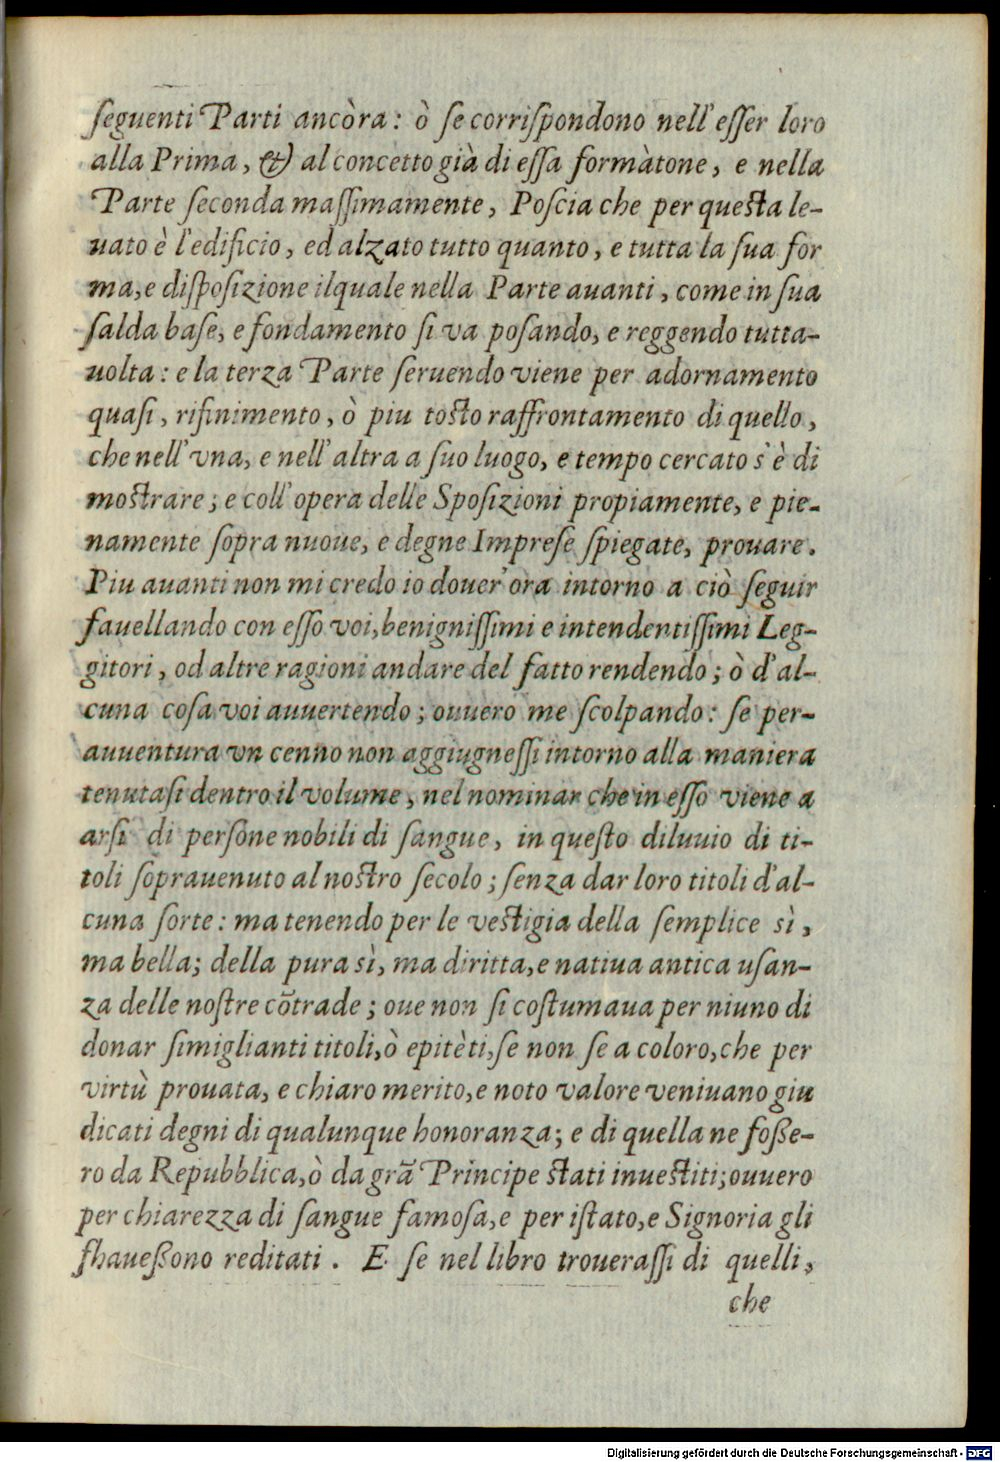 ſeguenti Parti ancòra: ò ſe corriſpondono nell'eſſer loro
alla Prima, & al concetto già di eſſa formàtone, e nella
Parte ſeconda maſſimamente, Poſcia che per queſta le-
uato è l'edificio, ed alzato tutto quanto, e tutta la ſua for
ma, e diſpoſizione ilquale nella Parte auanti, come in ſua
ſalda baſe, e fondamento ſi va poſando, e reggendo tutta-
uolta: e la terza Parte ſeruendo viene per adornamento
quaſi, rifinimento, ò piu toſto raffrontamento di quello,
che nell'vna, e nell'altra a ſuo luogo, e tempo cercato s'è di
moſtrare; e coll'opera delle Spoſizioni propiamente, e pie-
namente ſopra nuoue, e degne Impreſe ſpiegate, prouare.
Piu auanti non mi credo io douer'ora intorno a ciò ſeguir
fauellando con eſſo voi, benigniſſimi e intendentiſſimi Leg-
gitori, od altre ragioni andare del fatto rendendo; ò d'al-
cuna coſa voi auuertendo; ouuero me ſcolpando: ſe per-
auuentura vn cenno non aggiugneſſi intorno alla maniera
tenutaſi dentro il volume, nel nominar che in eſſo viene a
arſi di perſone nobili di ſangue, in queſto diluuio di ti-
toli ſoprauenuto al noſtro ſecolo; ſenza dar loro titoli d'al-
cuna ſorte: ma tenendo per le veſtigia della ſemplice sì,
ma bella; della pura sì, ma diritta, e natiua antica uſan-
za delle noſtre cõtrade; oue non ſi coſtumaua per niuno di
donar ſimiglianti titoli, ò epitèti, ſe non ſe a coloro, che per
virtù prouata, e chiaro merito, e noto valore veniuano giu
dicati degni di qualunque honoranza; e di quella ne foße-
ro da Repubblica, ò da grã Principe ſtati inueſtiti; ouuero
per chiarezza di ſangue famoſa, e per iſtato, e Signoria gli
ſhaueßono reditati. E ſe nel libro troueraſſi di quelli,
che
Digitalisierung gefördert durch die Deutsche Forschungsgemeinschaft - DFG